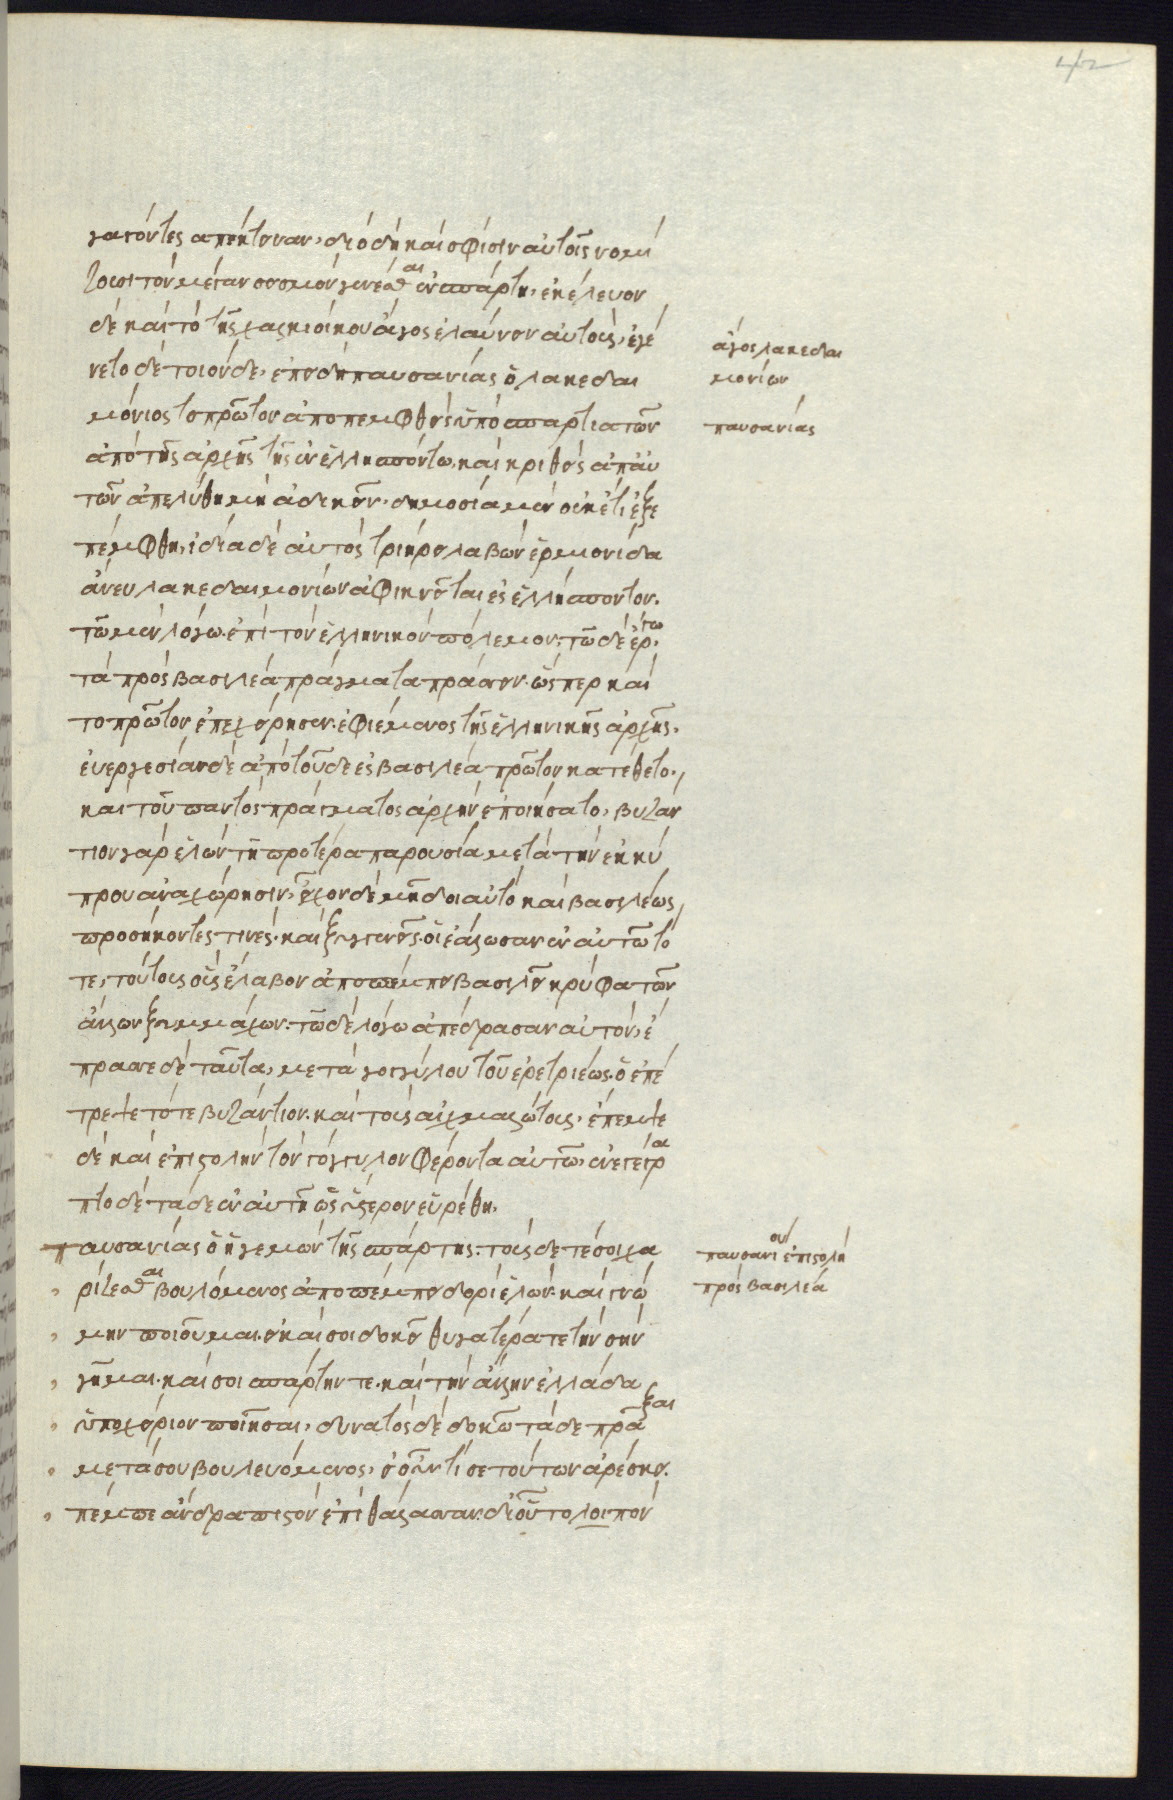 42
γαγόντες ἀπέκτειναν, διὸ δὴ καὶ σφίσιν αὐτοῖς νομί
ζουσι τὸν μέγαν σεισμὸν γενέσθαι ἐν σπάρτη, ἐκέλευον
δὲ καὶ τὸ τῆς χαλκιοίκου ἄγος ἐλαύνειν αὐτοὺς, ἐγέ
νετο δὲ τοιόνδε, ἐπειδὴ παυσανίας ὁ λακεδαι
μόνιος το πρῶτον ἀποπεμφθεὶς ὑπὸ σπαρτιατῶν
ἀπὸ τῆς ἀρχῆς τῆς ἐν ἑλλησπόντω, καὶ κριθεὶς ἀπ' αὐ
τῶν ἀπελύθη μὴ ἀδικεῖν. δημοσία μὲν οὐκέτι ἐξε
πέμφθη, ἰδία δὲ αὐτὸς τριήρη λαβὼν ἑρμιονίδα
ἄνευ λακεδαιμονίων ἀφικνεῖται ἐς ἑλλήσποντον.
τῶ μὲν λόγω ἐπὶ τὸν ἑλληνικὸν πόλεμον, τῶ δὲ ἔργω,
τὰ πρὸς βασιλέα πράγματα πράσσειν. ὥσπερ καὶ
το πρῶτον ἐπεχείρησεν. ἐφιέμενος τῆς ἑλληνικῆς ἀρχῆς.
ἐυεργεσίαν δὲ ἀπὸ τοῦδε ἐς βασιλέα πρῶτον κατέθετο,
καὶ τοῦ παντὸς πράγματος ἀρχὴν ἐποιήσατο, βυζάν
τιον γὰρ ἑλὼν τῆ προτέρα παρουσία μετὰ τὴν ἐκ κύ
πρου ἀναχώρησιν, εἶχον δὲ μῆδοι αὐτὸ καὶ βασιλέως
προσήκοντές τινες. καὶ ξυγγενεῖς. οἳ ἑάλωσαν ἐν αὐτῶ τό
τε, τούτους οὓς ἔλαβον ἀποπέμπει βασιλεῖ κρύφα τῶν
ἄλλων ξυμμάχων. τῶ δὲ λόγω ἀπέδρασαν αὐτὸν, ἔ
πρασσε δὲ ταῦτα, μετὰ γογγύλου τοῦ ἐρετριέως. ὧ ἐπέ
τρεψε τότε βυζάντιον. καὶ τοὺς αἰχμαλώτους, ἔπεμψε
δὲ καὶ ἐπιστολὴν τὸν γόγγυλον φέροντα αὐτῶ, ἐνεγέγρα
πτο δὲ τάδε ἐν αὐτῆ ὡς ὕστερον εὑρέθη.
παυσανίας ὁ ἡγεμὼν τῆς σπάρτης. τούσδε τέ σοι χα
ρίζεσθαι βουλόμενος ἀποπέμπει δορὶ ἑλών. καὶ γνώ
μην ποιοῦμαι. εἰ καὶ σοι δοκεῖ θυγατέρα τε τὴν σὴν
γῆμαι. καὶ σοι σπάρτην τε. καὶ τὴν ἄλλην ἑλλάδα
ὑποχείριον ποιῆσαι, δυνατὸς δὲ δοκῶ τάδε πράξαι
μετὰ σου βουλευόμενος, εἰ οὖν τί σε τούτων ἀρέσκει.
πέμπε ἄνδρα πιστὸν ἐπὶ θάλασσαν. δι' οὗ το λοιπὸν
ἄγος λακεδαι
μονίων
παυσανίας
παυσανίου ἐπιστολὴ
πρὸς βασιλέα